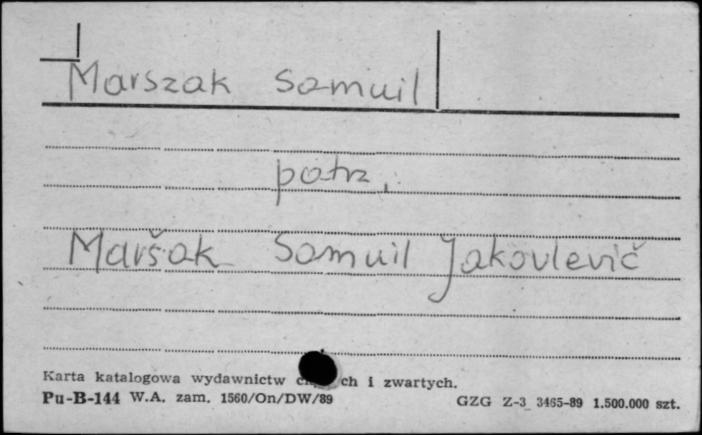 Marszak Samuil
patrz,
Maršak Samuil Jakovlevič
Karta katalogowa wydawnictw i zwartych.
Pu-B-144 W.A. zam. 1560/On/DW/89
GZG Z-3 3465-89 1.500.000 szt.